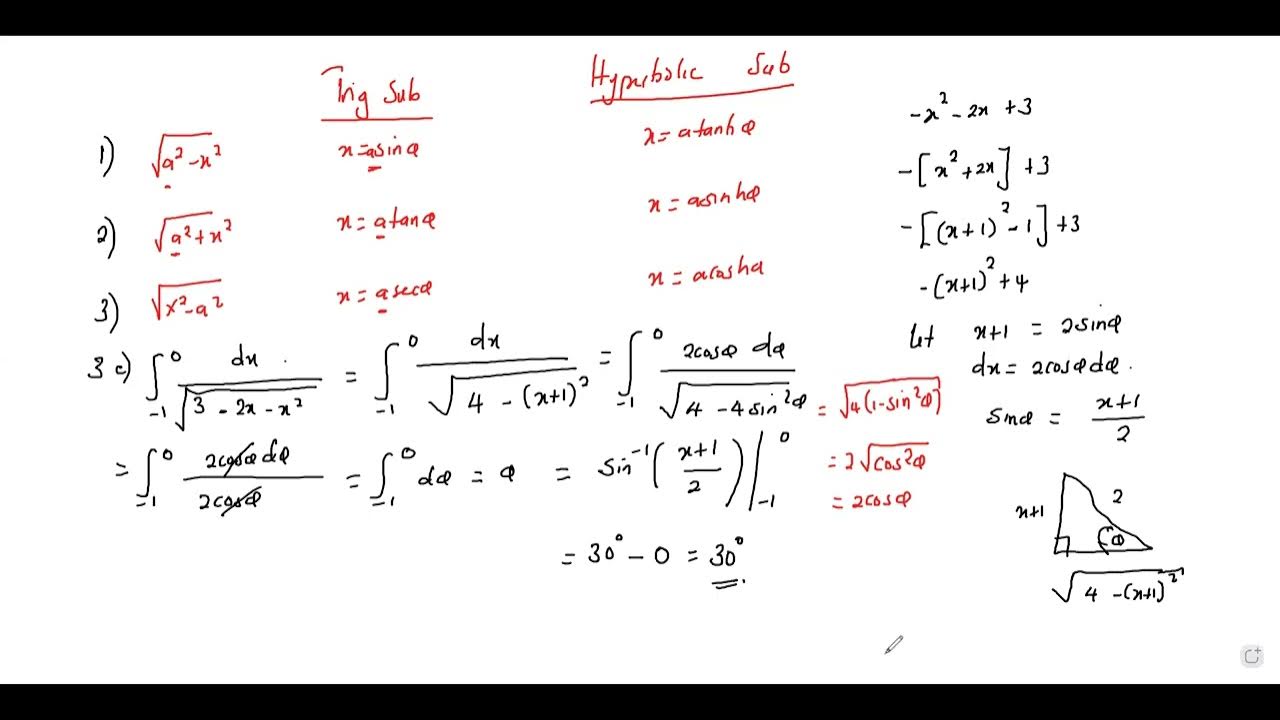 Trig Sub
Hyperbolic Sub
1) √(a² - x²) x = a sin θ x = a tanh θ
2) √(a² + x²) x = a tan θ x = a sinh θ
3) √(x² - a²) x = a sec θ x = a cosh θ
-x² - 2x + 3
-[x² + 2x] + 3
-[(x+1)² - 1] + 3
-(x+1)² + 4
Let x+1 = 2sinθ
dx = 2cosθ dθ.
sinθ = (x+1)/2
3 c) ∫₋₁⁰ dx / √(3 - 2x - x²) = ∫₋₁⁰ dx / √(4 - (x+1)²) = ∫₋₁⁰ 2cosθ dθ / √(4 - 4sin²θ)
= √(4(1-sin²θ))
= 2√(cos²θ)
= 2cosθ
= ∫₋₁⁰ 2cosθ dθ / 2cosθ = ∫₋₁⁰ dθ = θ = sin⁻¹((x+1)/2) |₋₁⁰
= 30° - 0 = 30°
x+1
2
θ
√(4 - (x+1)²)